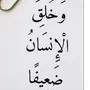 وَخُلِقَ
الْإِنسَانُ
ضَعِيفًا